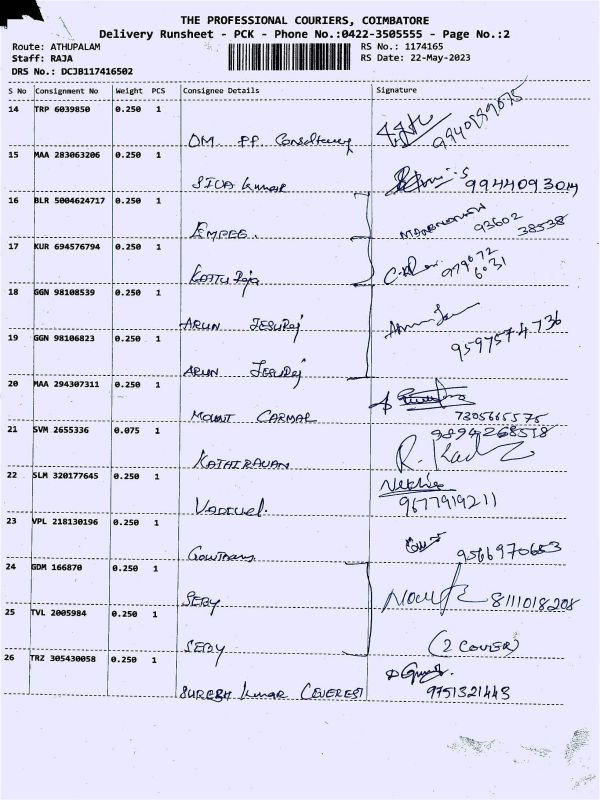 THE PROFESSIONAL COURIERS, COIMBATORE
Delivery Runsheet - PCK - Phone No.:0422-3505555 - Page No.:2
Route: ATHUPALAM RS No.: 1174165
Staff: RAJA RS Date: 22-May-2023
DRS No.: DCJB117416502
S No Consignment No Weight PCS Consignee Details Signature
14 TRP 6039850 0.250 1
DM PP Consultency 9940989075
15 MAA 283063206 0.250 1
SIVA Kumar 9944093014
16 BLR 5004624717 0.250 1
EMPEE. 93602 38538
17 KUR 694576794 0.250 1
KATTU Raja 979072 6031
18 GGN 98108539 0.250 1
ARUN JESURAj
19 GGN 98106823 0.250 1 9597574736
ARUN JESURAj
20 MAA 294307311 0.250 1
MOUNT CARMAL 7305665575
21 SVM 2655336 0.075 1 9894268518
KATHIRAVAN
22 SLM 320177645 0.250 1 Nekha
9677919211
23 VPL 218130196 0.250 1
Gowtham 9566970653
24 GDM 166870 0.250 1
SEBY 8111018208
25 TVL 2005984 0.250 1
SEBY (2 COVER)
26 TRZ 305430058 0.250 1
SURESH Kumar (EVEREST 9751321443